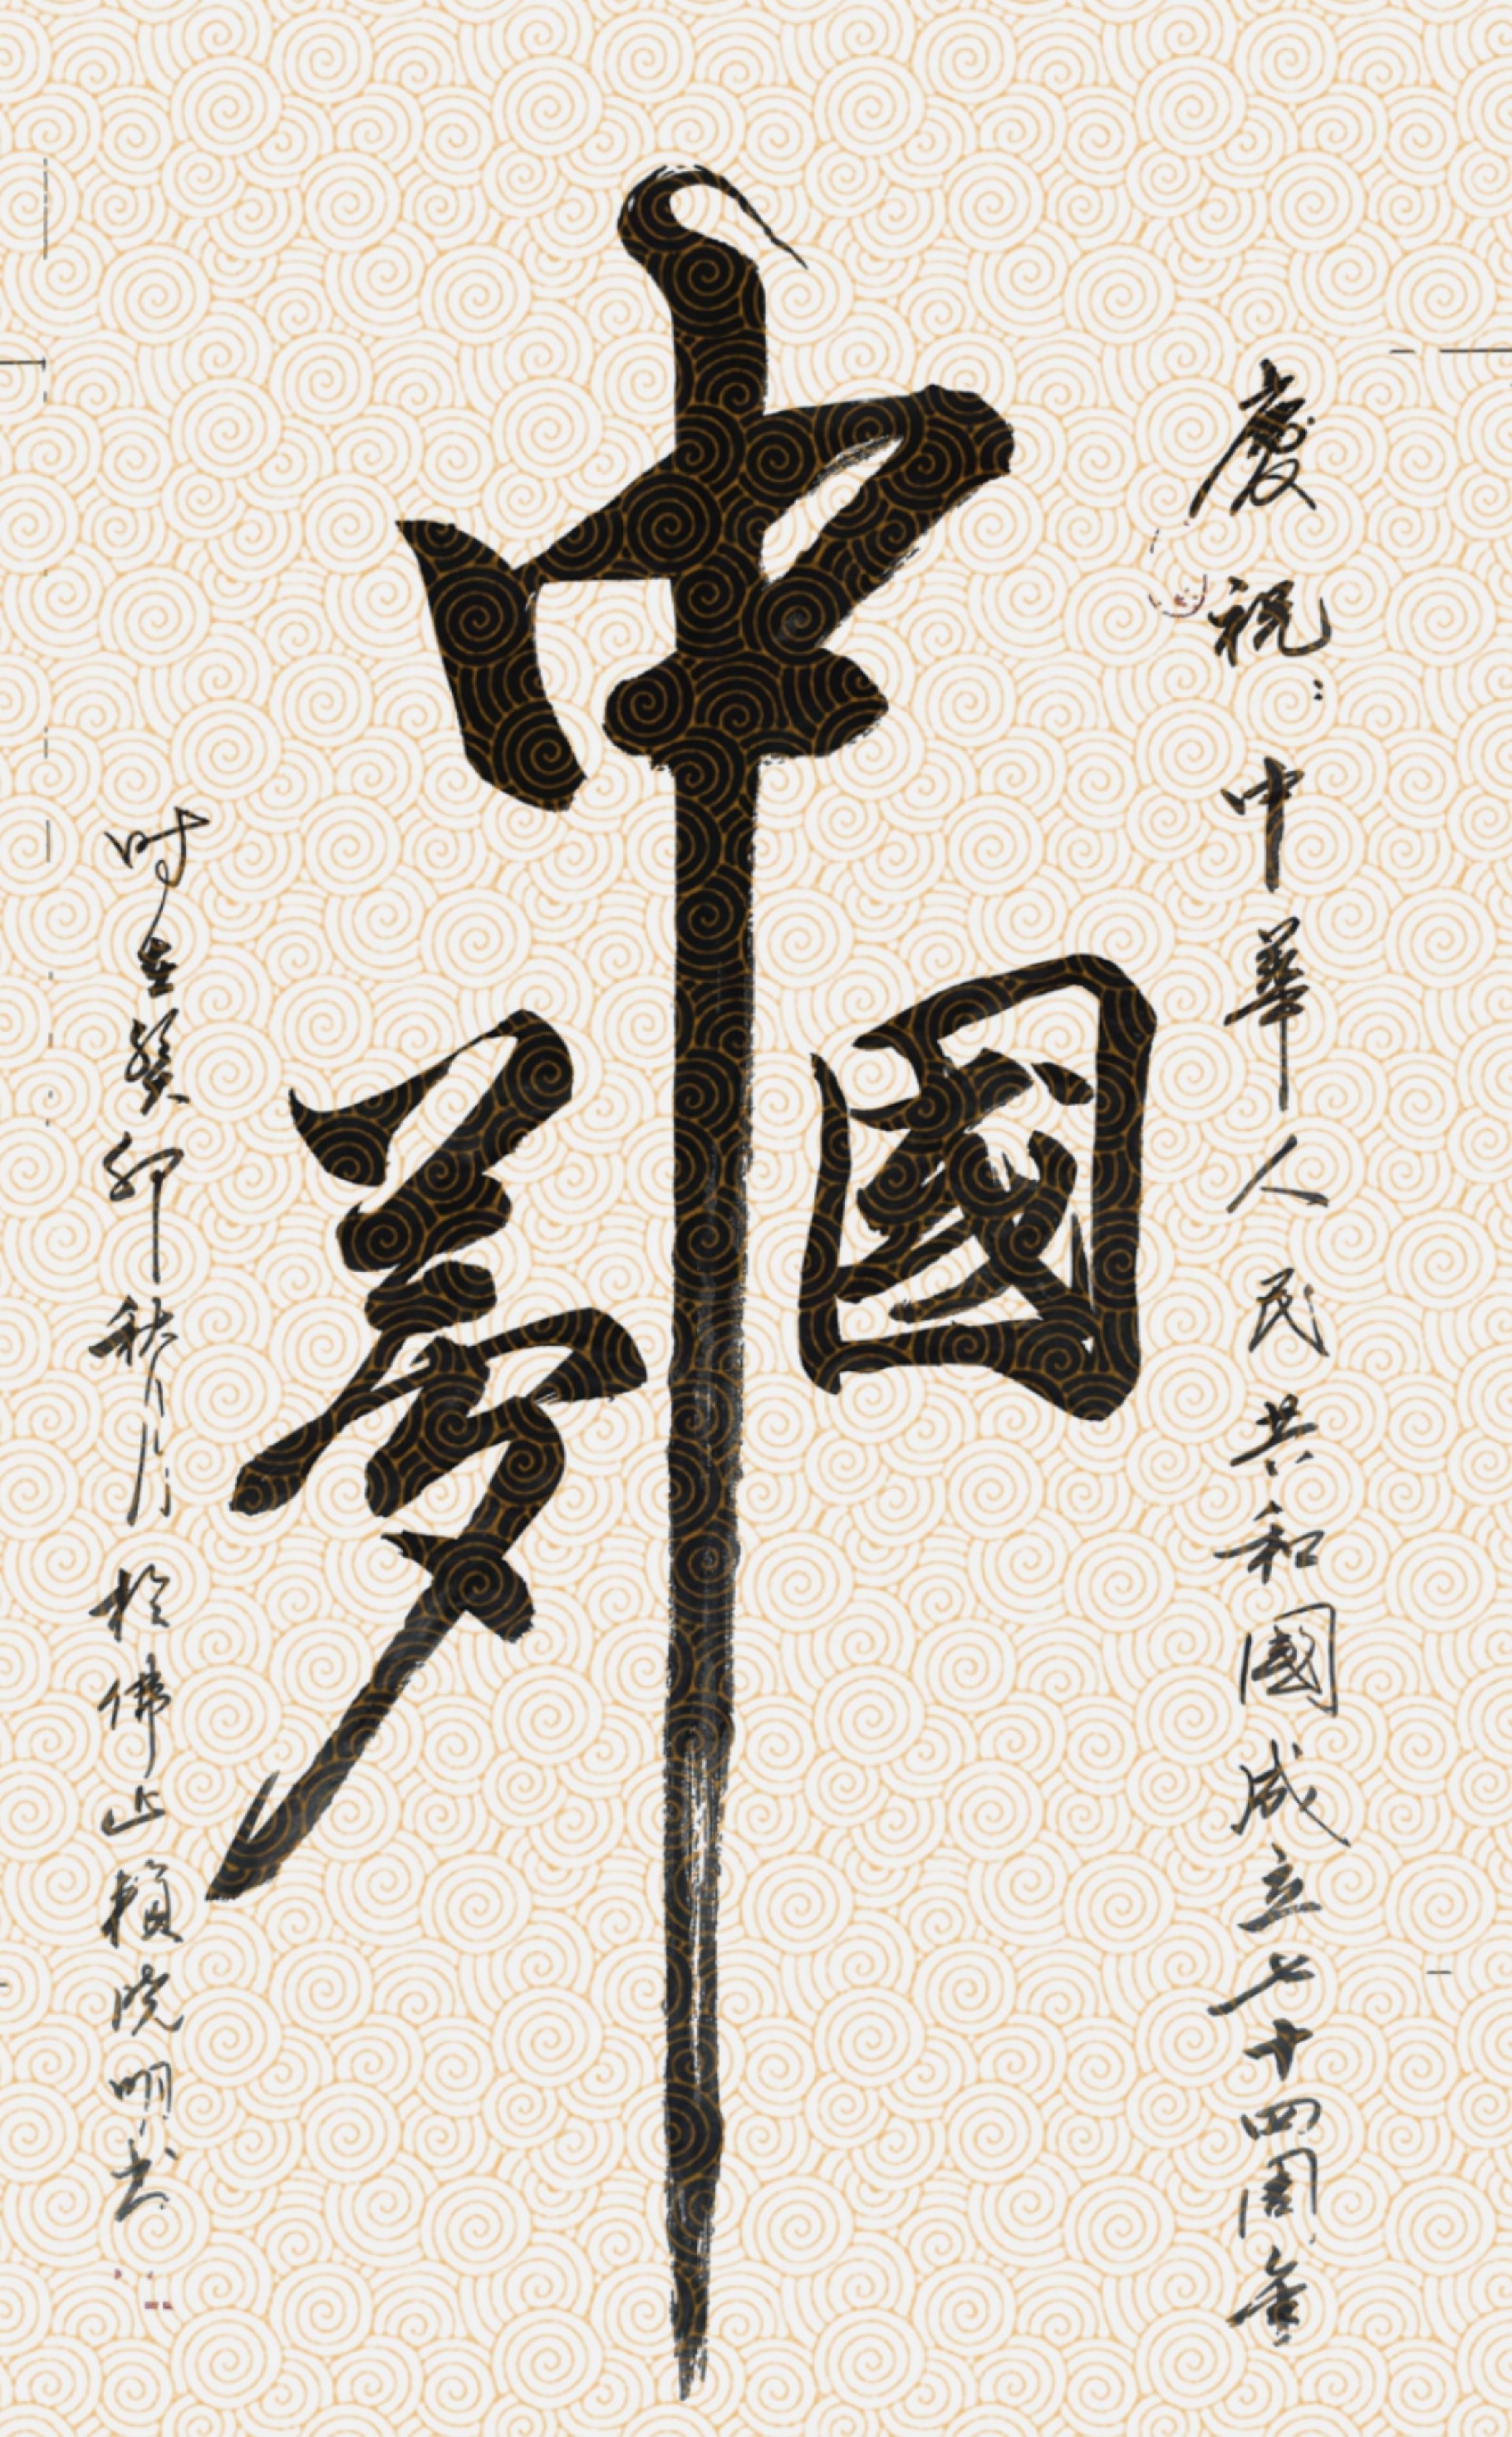 慶祝：中華人民共和國成立七十四周年
中國夢
时在癸卯秋月於佛山賴晓明书